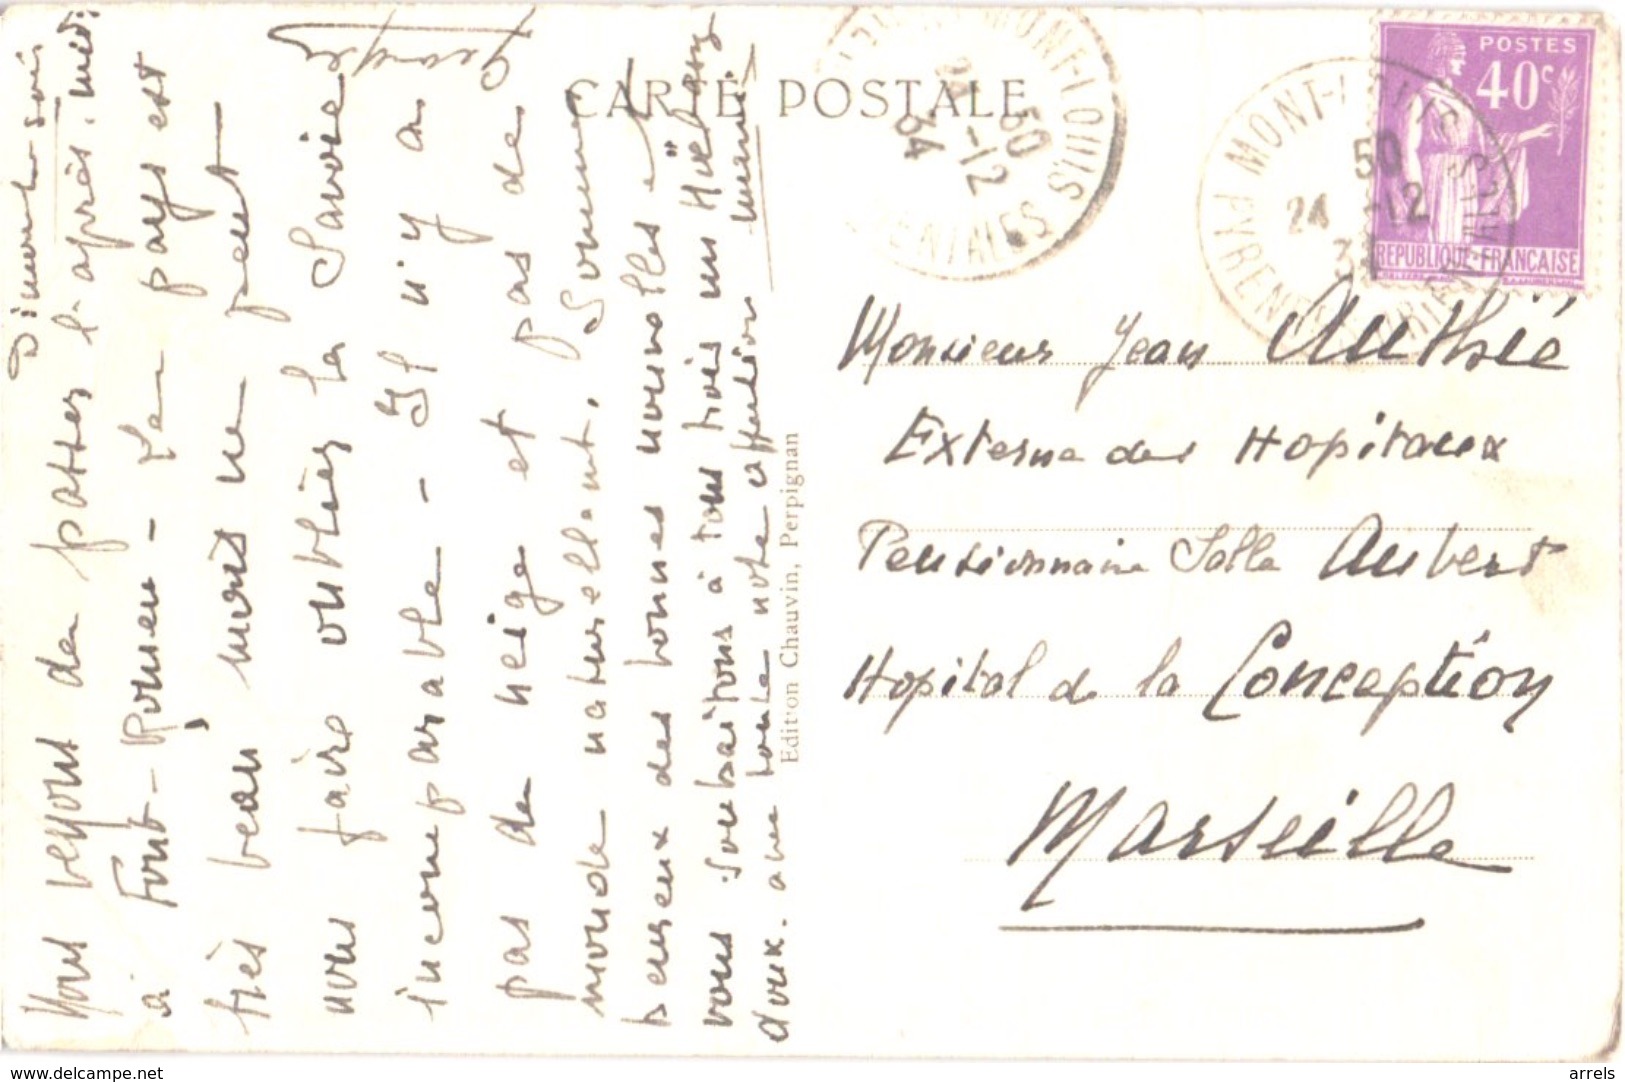 Dimanche soir
Nous venons de passer l'après-midi
à Font-Romeu - Le pays est
très beau, mais ne peut
nous faire oublier la Savoie
incomparable - Il n'y a
pas de neige et pas de
monde naturellement. Sommes
heureux des bonnes nouvelles et
vous souhaitons à tous trois un Noël
doux. avec toute notre affection
CARTE POSTALE
Edition Chauvin, Perpignan
MONT-LOUIS
50
24 -12
34
POSTES
40c
REPUBLIQUE-FRANÇAISE
MONT-LOUIS
50
24 -12
34
Monsieur Jean Authié
Externe des Hopitaux
Pensionnaire Salle Aubert
Hopital de la Conception
Marseille
www.delcampe.net
arrels